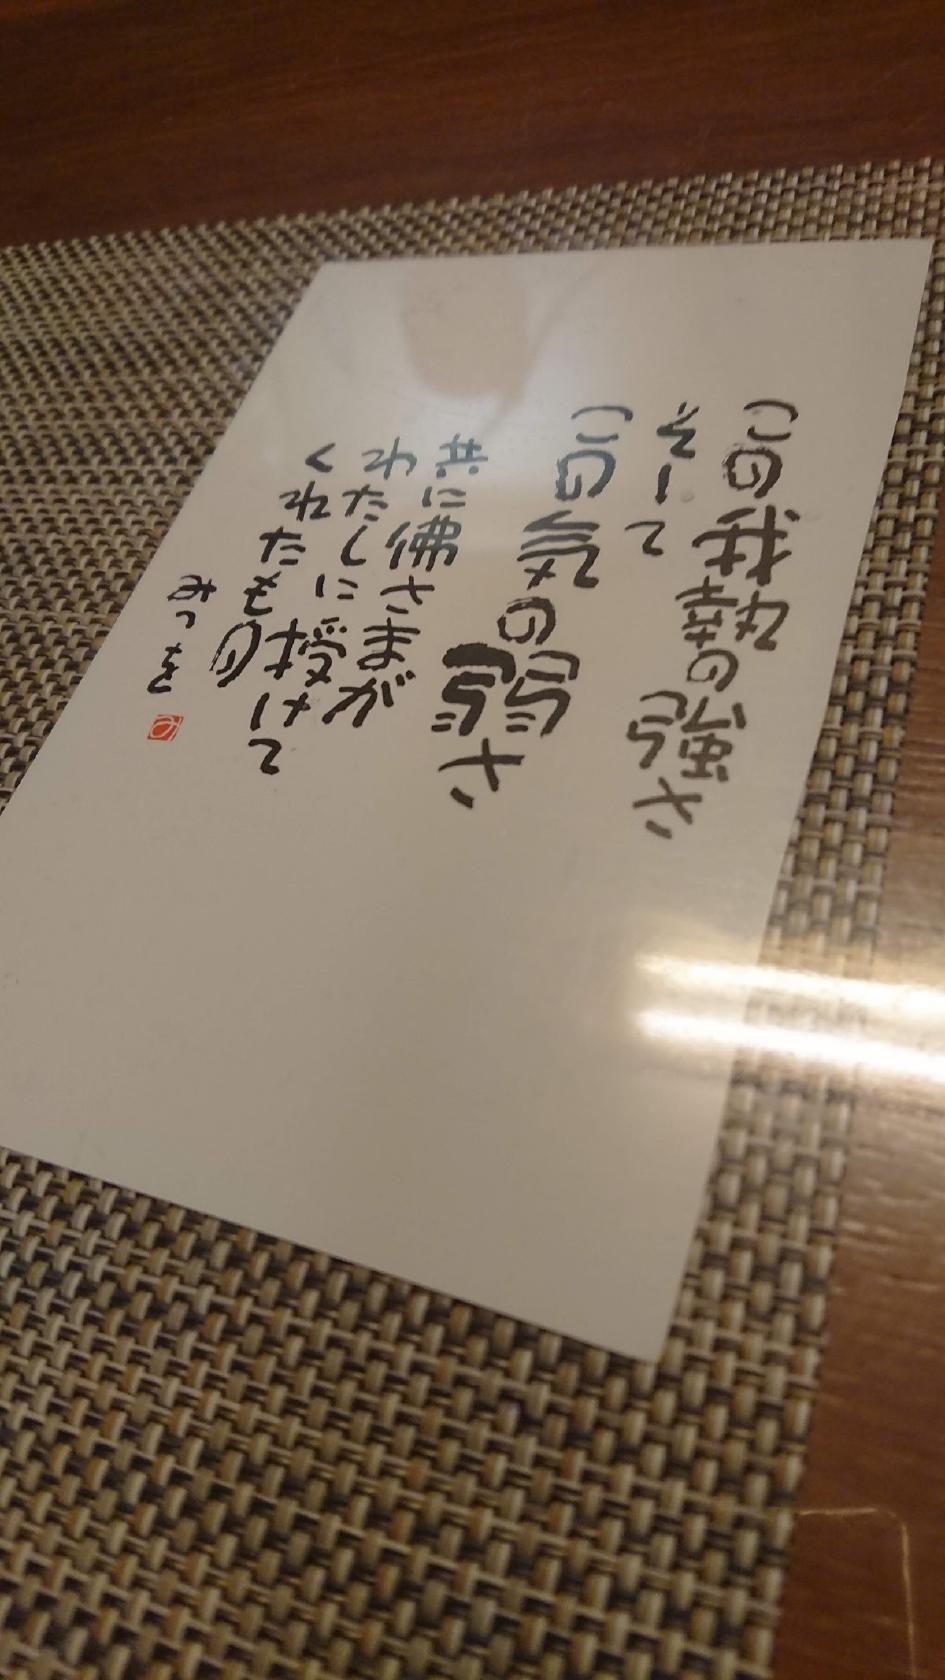 この我執の強さ
そして
この気の弱さ
共に佛さまが
わたしに授けて
くれたもの
みつを